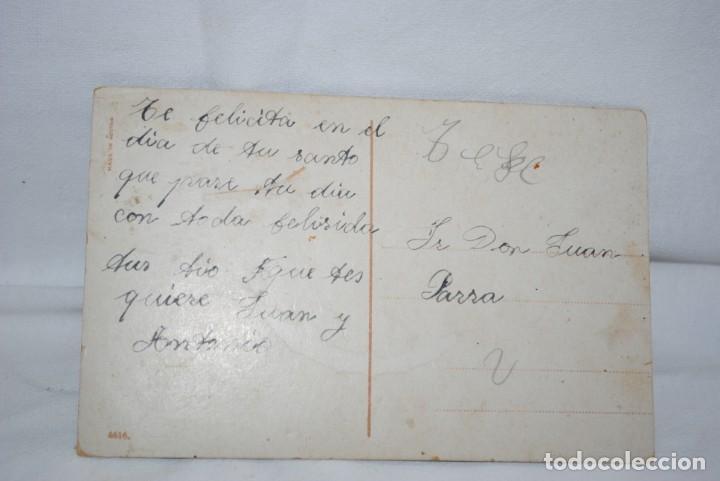 Te felicita en el
dia de tu santo
que pase tu dia
con toda felisida
tus tio que tes
quiere Juan y
Antonio
Sr Don Juan
Parra
4616.
todocoleccion
todocoleccion.net